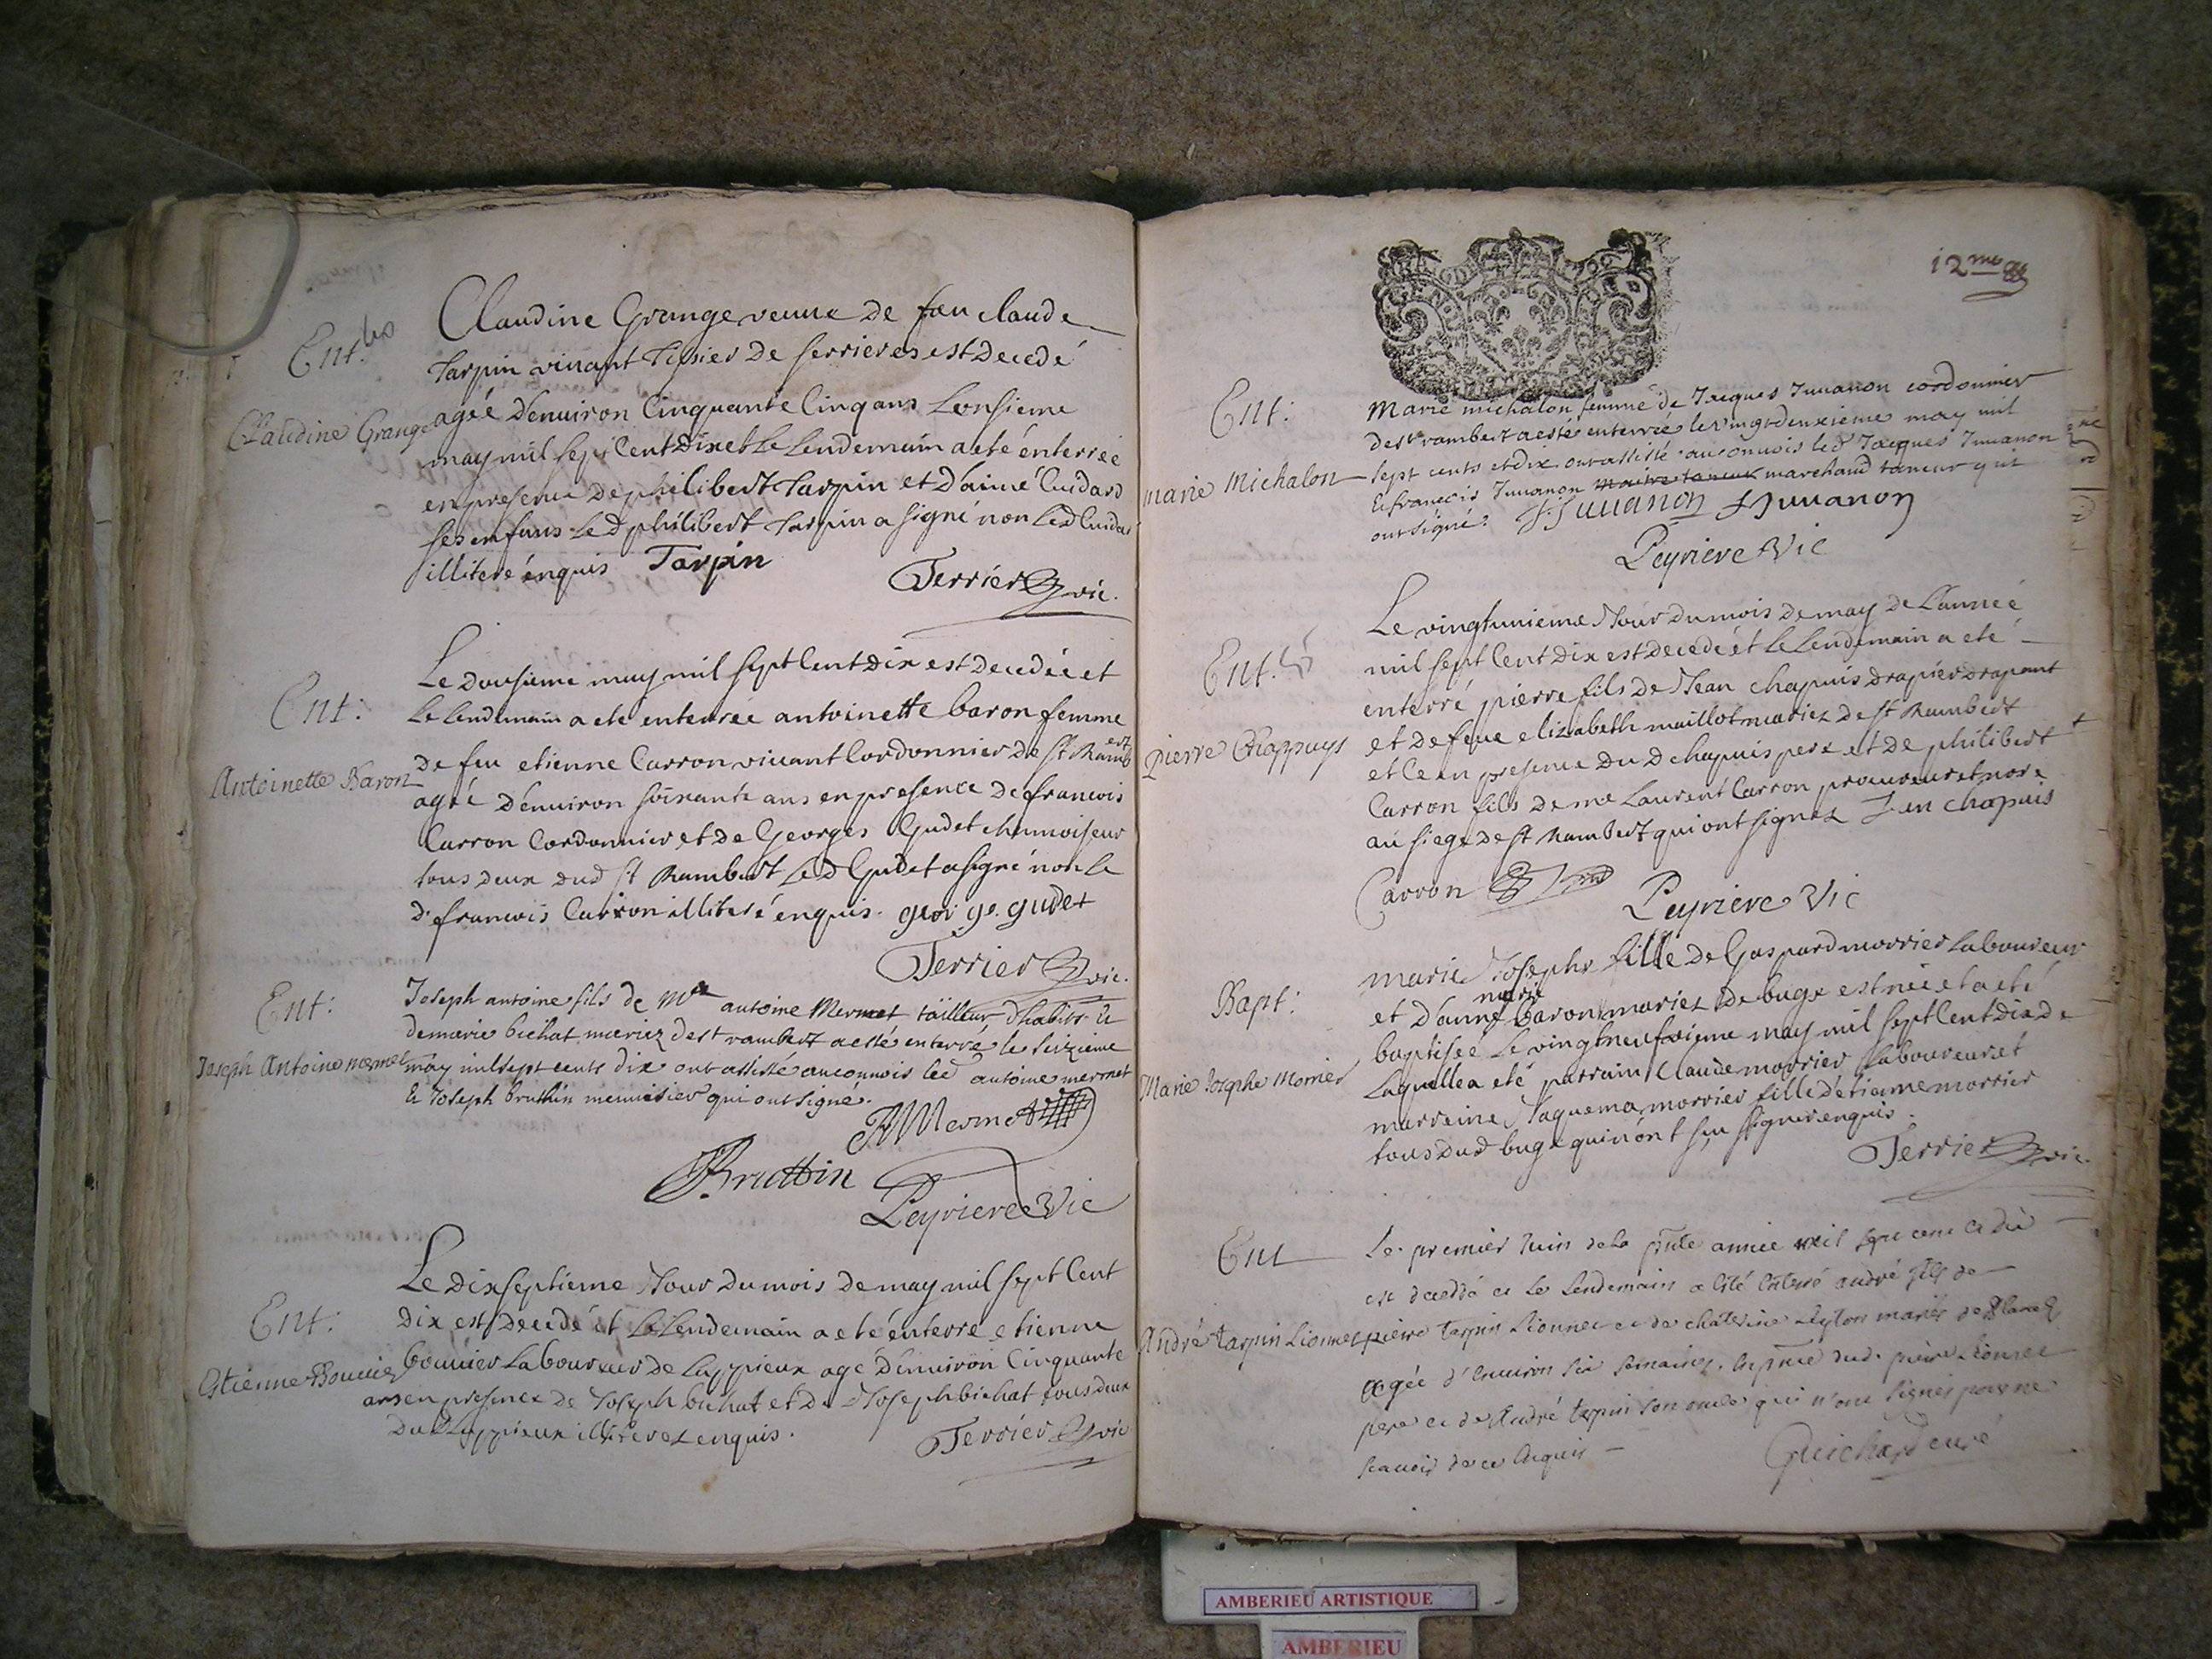 Ent.
Claudine Grange
Claudine Grange veuue de feu claude
Tarpin viuant tissier de serrieres est decedé
agée d'enuiron Cinquante Cinq ans Lonsieme
may mil sept Cent Dix et Le Lendemain a eté énterrée
en presence de philibert Tarpin et d'aimé Cuidard
ses enfans Le d philibert Tarpin a signé non Led Cuidar
illiteré énquis Tarpin
Terrier vic.
Ent:
Antoinette Baron
Le dousieme may mil sept Cent Dix est decedée et
Le Lendemain a eté enterrée antoinette baron femme
de feu etienne Carron viuant Cordonnier de st Rambert
agée d'énuiron soixante ans en presence de francois
Carron Cordonnier et de Georges Gudet chamoiseur
tous deux dud st Rambert Led Gudet a signé non Le
d. francois Carron illiteré enquis. gudet
Terrier vic.
Ent:
Joseph Antoine mermet
Joseph antoine fils de Mre antoine Mermet tailleur d'habits &
de marie bichat mariez de st rambert a esté enterré le seizieme
may mil sept cents dix ont assisté au conuois led antoine mermet
& Joseph bruttin menuisier qui ont signé.
AMermet
Bruttin
Peyriere Vic
Ent:
Etienne Bouuier
Le dixseptieme Jour du mois de may mil sept Cent
dix est decedé et Le Lendemain a eté énterré etienne
bouuier Laboureur de Luppieux agé d'énuiron Cinquante
ans en presence de Joseph bichat et de Joseph bichat tous deux
du d Luppieux illiterez enquis.
Terrier vic
12me
Ent:
marie Michalon
Marie michalon femme de Jacques Juuanon cordonnier
de st rambert a esté enterrée le vingt deuxieme may mil
sept cents et dix ont assisté au conuois led Jacques Juuanon
& francois Juuanon maitre taneur marchand taneur qui
ont signé. JJuuanon fJuuanon
Peyriere Vic
Ent.
Pierre Chappuys
Le vingtunieme Jour du mois de may de L'année
mil sept Cent dix est decedé et Le Lendemain a eté
enterré pierre fils de Jean chapuis drapier drapant
et de feue elizabeth maillot mariez de st Rambert
et Ce en presence du d chapuis pere et de philibert
Carron fils de me Laurent Carron procureur et nore
au siege de st Rambert qui ont signez Jean chapuis
Carron
Peyriere Vic
Bapt:
Marie Josephe Morrier
marie Josephe fille de Gaspard morrier Laboureur
et d'anne marie baron mariez de buge est née et a eté
baptisée Le vingt neufsieme may mil sept Cent dix de
Laquelle a eté parrain Claude morrier Laboureur et
marreine Jaquema morrier fille d'etienne morrier
tous dud buge qui n'ont sçu signer enquis.
Terrier vic.
Ent
André tarpin Lionnet
Le premier Juin de la pnte année mil sept cent et dix
est decedé et Le Lendemain a esté enterré andré fils de
pierre tarpin Lionnet et de chaterine mariés de
agée d'enuiron six semaines. en pnce dud. pierre Lionnet
pere et de André tarpin son oncle qui n'ont signés pour ne
scauoir de ce enquis
Guichard curé
AMBERIEU ARTISTIQUE
AMBERIEU